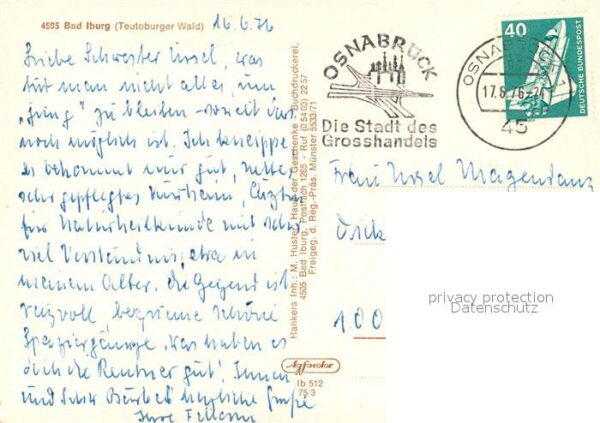 4505 Bad Iburg (Teutoburger Wald)
16.6.76
Liebe Schwester Ursel, was
tut man nicht alles, um
"jung" zu bleiben - soweit das
noch möglich ist. Ich kneippe
es bekommt mir gut, nettes
sehr gepflegtes Kurheim, Ärztin
für Naturheilkunde mit sehr
viel Verständnis, etwa in
meinem Alter. Die Gegend ist
reizvoll bequeme schöne
Spaziergänge, was haben es
doch die Rentner gut! Ihnen
und Schw. Bärbel herzliche Grüße
Ihre
Hankers Inh.: M. Huster, Haus der Geschenke - Buchdruckerei,
4505 Bad Iburg, Postfach 1265 - Ruf (0 54 03) 22 57
Freigeg. d. Reg.-Präs. Münster 5533/71
Agfacolor
Ib 512
75/3
OSNABRÜCK
Die Stadt des
Grosshandels
OSNABRÜCK 1
17.6.76-24
45
40
DEUTSCHE BUNDESPOST
Frau Ursel Magendanz
100
privacy protection
Datenschutz